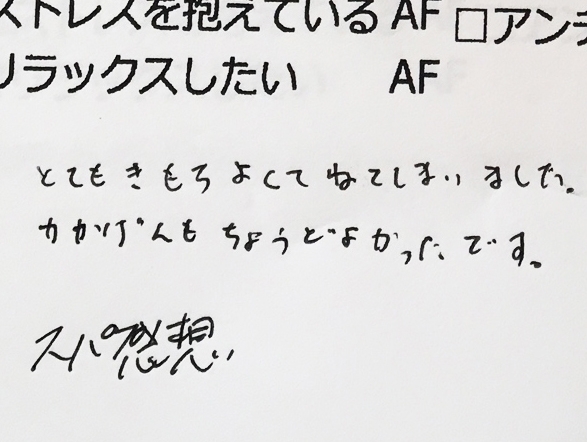 ストレスを抱えているAF □アンチ
リラックスしたい AF
とてもきもちよくてねてしまいました。
力かげんもちょうどよかったです。
スパ感想